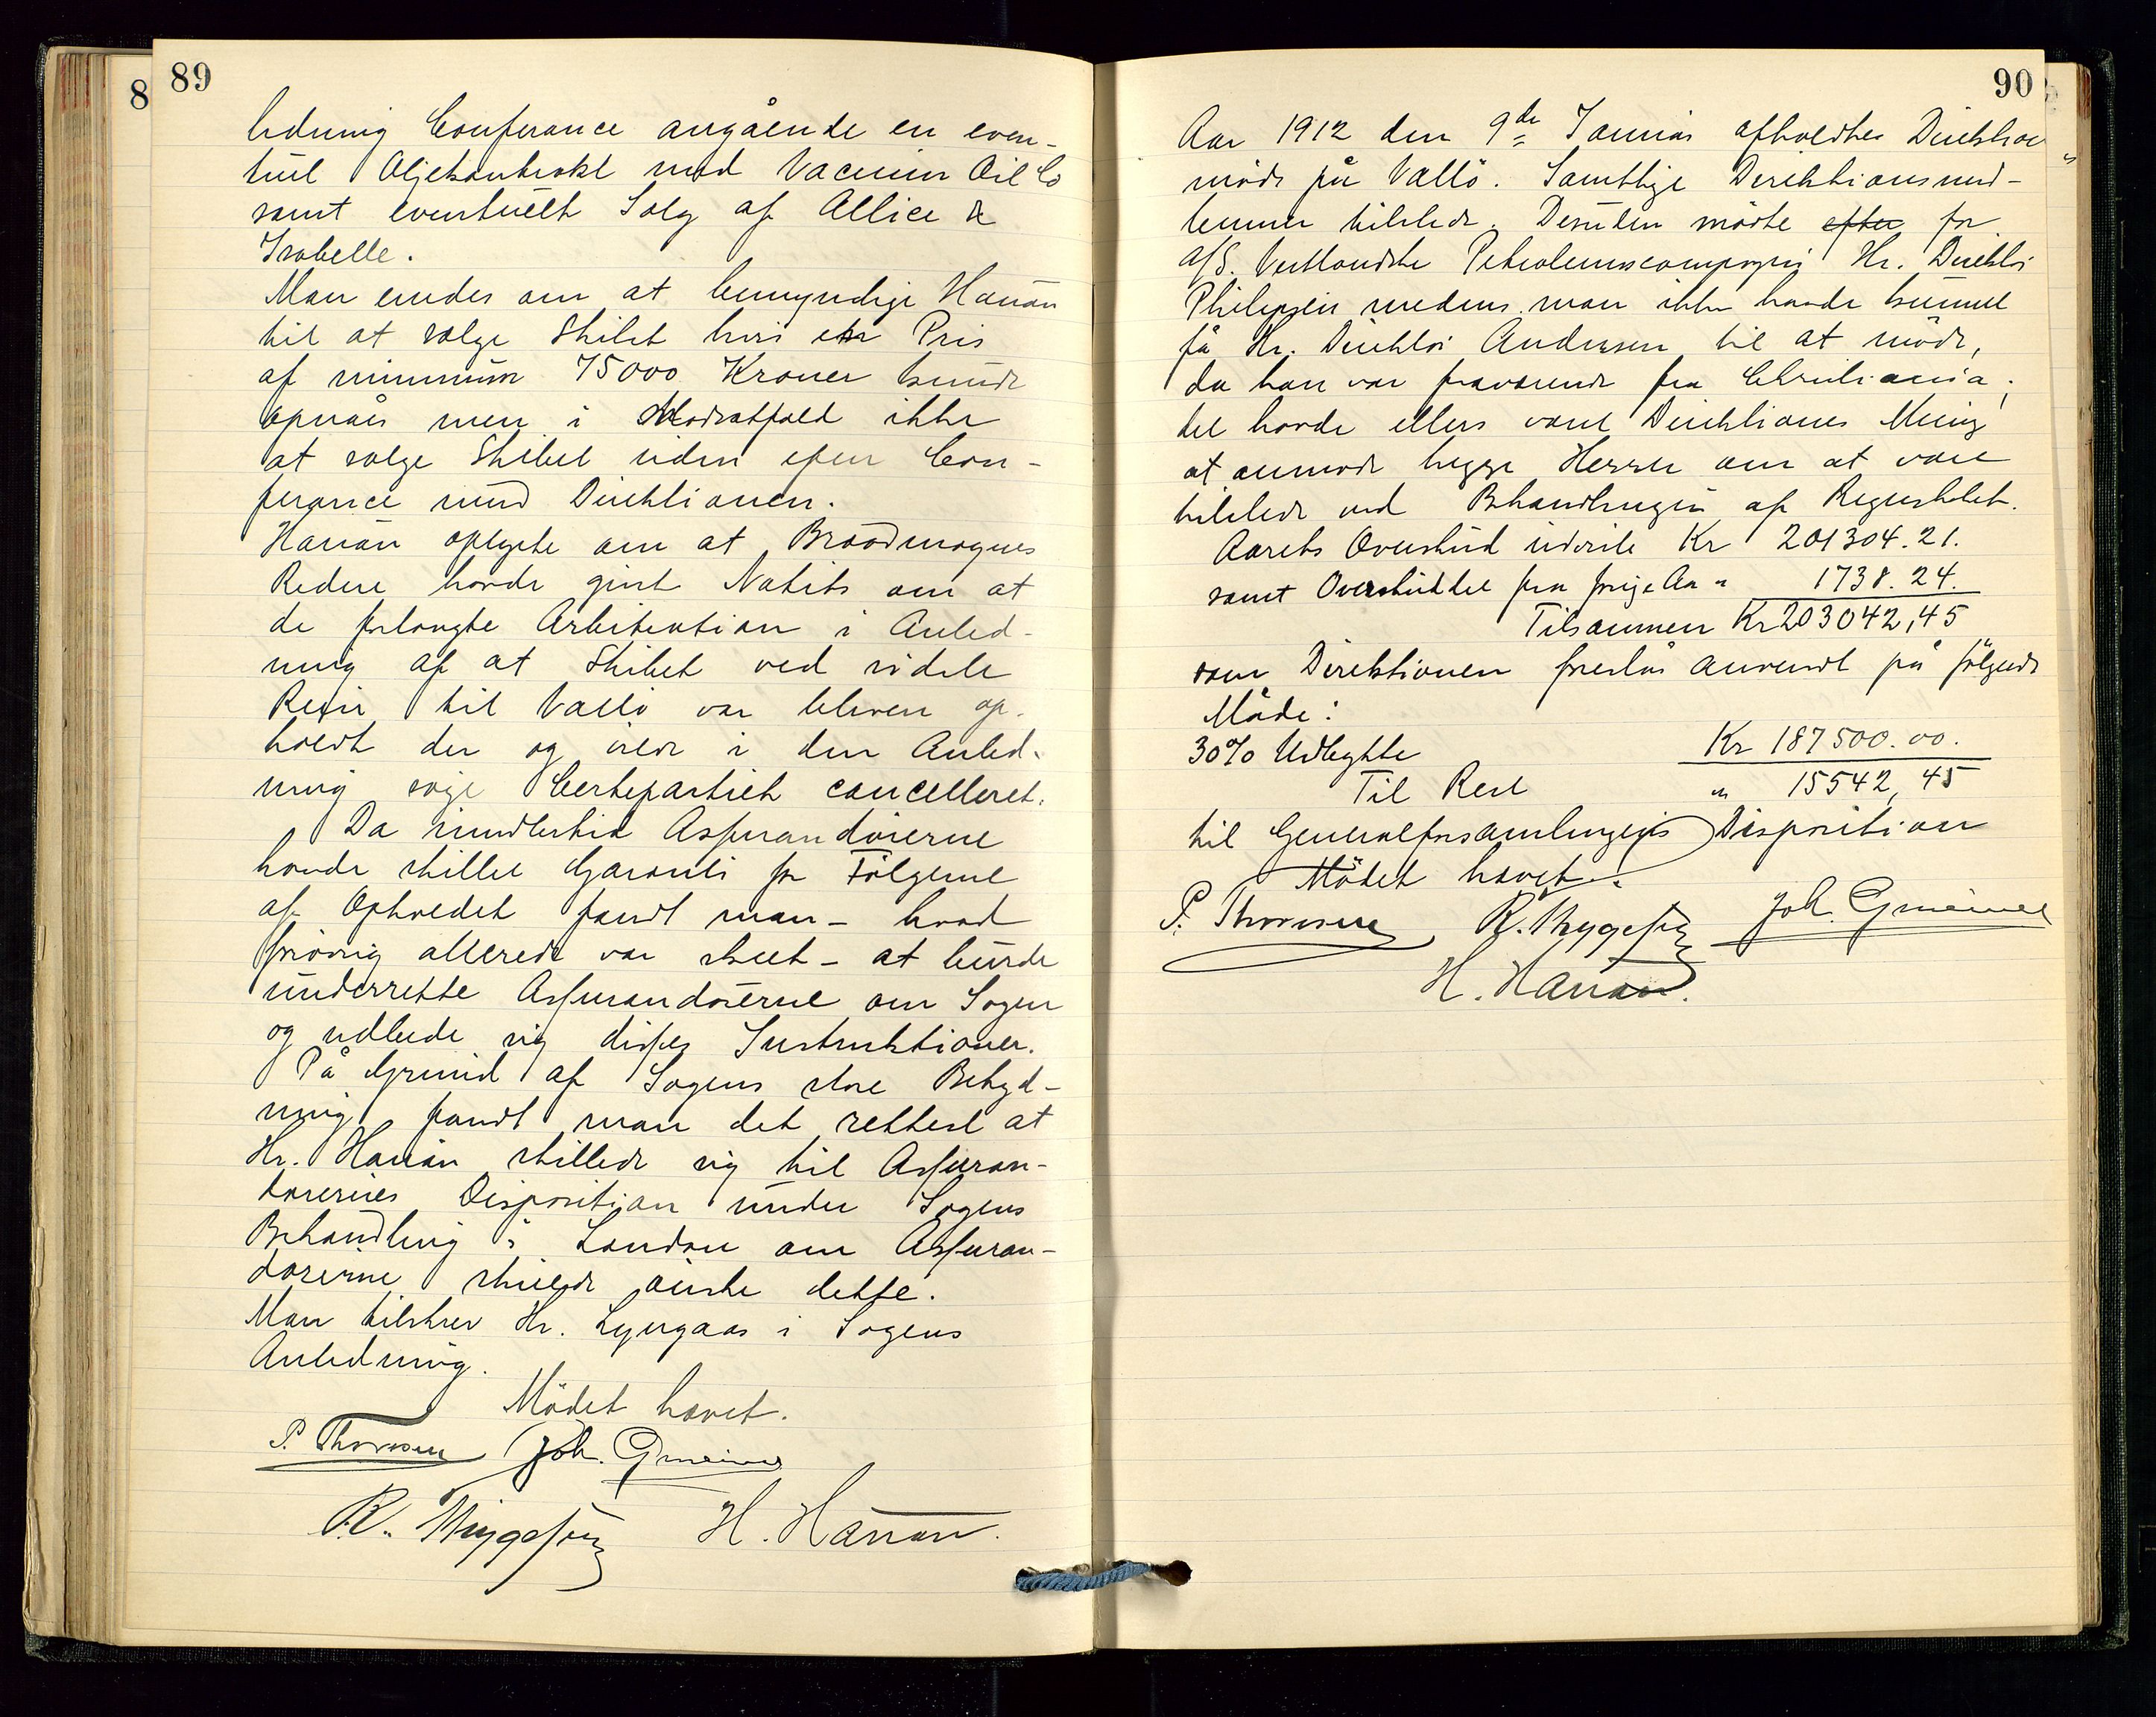 89
ledning Conferance angående en even-
tuel Oljekontrakt med Vacuum Oil Co
samt eventuelt Salg af Allice &
Isabelle.
Man enedes om at bemyndige Hanan
til at sælge Skibet hvis en Pris
af minimum 75000 Kroner kunde
opnåes men i Modsatfald ikke
at sælge Skibet uden efter Con-
ferance med Direktionen.
Hanan oplyste om at Broadmaynes
Redere havde givet Notits om at
de forlangte Arbitration i Anled-
ning af at Skibet ved sidste
Reise til Vallö var bleven op-
holdt der og vilde i den Anled-
ning söge Certepartiet cancelleret.
Da imidlertid Assurandörerne
havde stillet Garanti for Fölgerne
af Opholdet fandt man - hvad
forövrig allerede var skeet - at burde
underrette Assurandörerne om Sagen
og udbede sig disses Instruktioner.
På Grund af Sagens store Betyd-
ning fandt man det rettest at
Hr. Hanan stillede sig til Assuran-
dörernes Disposition under Sagens
Behandling i London om Assuran-
dörerne skulde önske dette.
Man tilskrev Hr. Lyngaas i Sagens
Anledning.
Mödet hævet.
P. Thoresen Joh. Grüner
R. Thygesen H. Hanan.
90
Aar 1912 den 9de Januar afholdtes Direktions
möde på Vallö. Samtlige Direktionsmed-
lemmer tilstede. Desuden mödte efter for
A/S. Vestlandske Petroleumscompagni Hr. Direktör
Philipsen medens man ikke havde kunnet
få Hr. Direktör Andersen til at möde,
da han var fraværende fra Christiania;
det havde ellers været Direktionens Mening
at anmode begge Herrer om at være
tilstede ved Behandlingen af Regnskabet.
Aarets Overskud udviste Kr 201304.21.
samt Overskuddet fra forrige Aar " 1738.24.
Tilsammen Kr 203042,45
som Direktionen foreslås anvendt på fölgende
Måde:
30% Udbytte Kr 187500.00.
Til Rest " 15542,45
til Generalforsamlingens Disposition
Mödet hævet.
P. Thoresen R. Thygesen Joh. Grüner
H. Hanan.